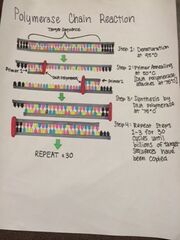 Polymerase Chain Reaction
Target Sequence
Step 1: Denaturation
at 95°C
Primer 1
DNA Polymerase
Primer 2
Step 2: Primer Annealing
at 50°C
(DNA polymerase
attaches at 72°C)
Step 3: Synthesis by
DNA polymerase
at 72°C
Step 4: Repeat Steps
1-3 for 30
cycles until
billions of target
sequences have
been copied.
REPEAT x30